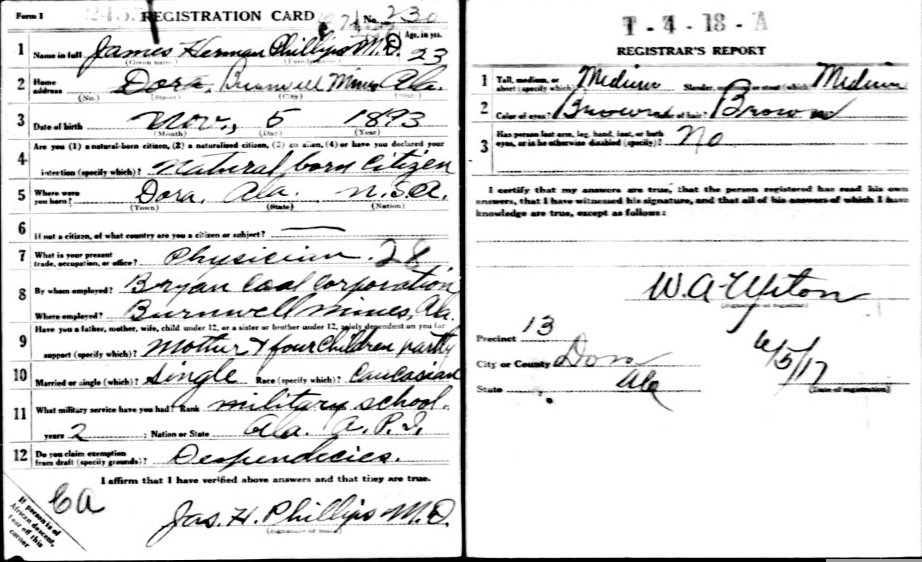 Form 1 REGISTRATION CARD No. 230
Age, in yrs.
1 Name in full James Herman Phillips M.D. 23
(Given name) (Family name)
2 Home address Dora, Burnwell Mines Ala.
(No.) (Street) (City) (State)
3 Date of birth Nov., 5 1893
(Month) (Day) (Year)
Are you (1) a natural-born citizen, (2) a naturalized citizen, (3) an alien, (4) or have you declared your
4 intention (specify which)? Natural born citizen
5 Where were you born? Dora, Ala. U.S.A.
(Town) (State) (Nation)
6 If not a citizen, of what country are you a citizen or subject? —
7 What is your present trade, occupation, or office? Physician. 28
8 By whom employed? Bryan Coal Corporation
Where employed? Burnwell Mines, Ala.
Have you a father, mother, wife, child under 12, or a sister or brother under 12, solely dependent on you for
9 support (specify which)? Mother & four Children partly
10 Married or single (which)? Single Race (specify which)? Caucasian
11 What military service have you had? Rank military school.
years 2 ; Nation or State Ala. A. P. I.
12 Do you claim exemption from draft (specify grounds)? Despendicies.
I affirm that I have verified above answers and that they are true.
Jas. H. Phillips M.D.
(Signature or mark)
If person is of African descent, tear off this corner
T-4-18-A
REGISTRAR'S REPORT
1 Tall, medium, or short (specify which)? Medium Slender, medium, or stout (which)? Medium
2 Color of eyes? Brown Color of hair? Brown
3 Has person lost arm, leg, hand, foot, or both eyes, or is he otherwise disabled (specify)? No
I certify that my answers are true, that the person registered has read his own
answers, that I have witnessed his signature, and that all of his answers of which I have
knowledge are true, except as follows:
(Signature of registrar)
Precinct 13
City or County Dora
State Ala
6/5/17
(Date of registration)